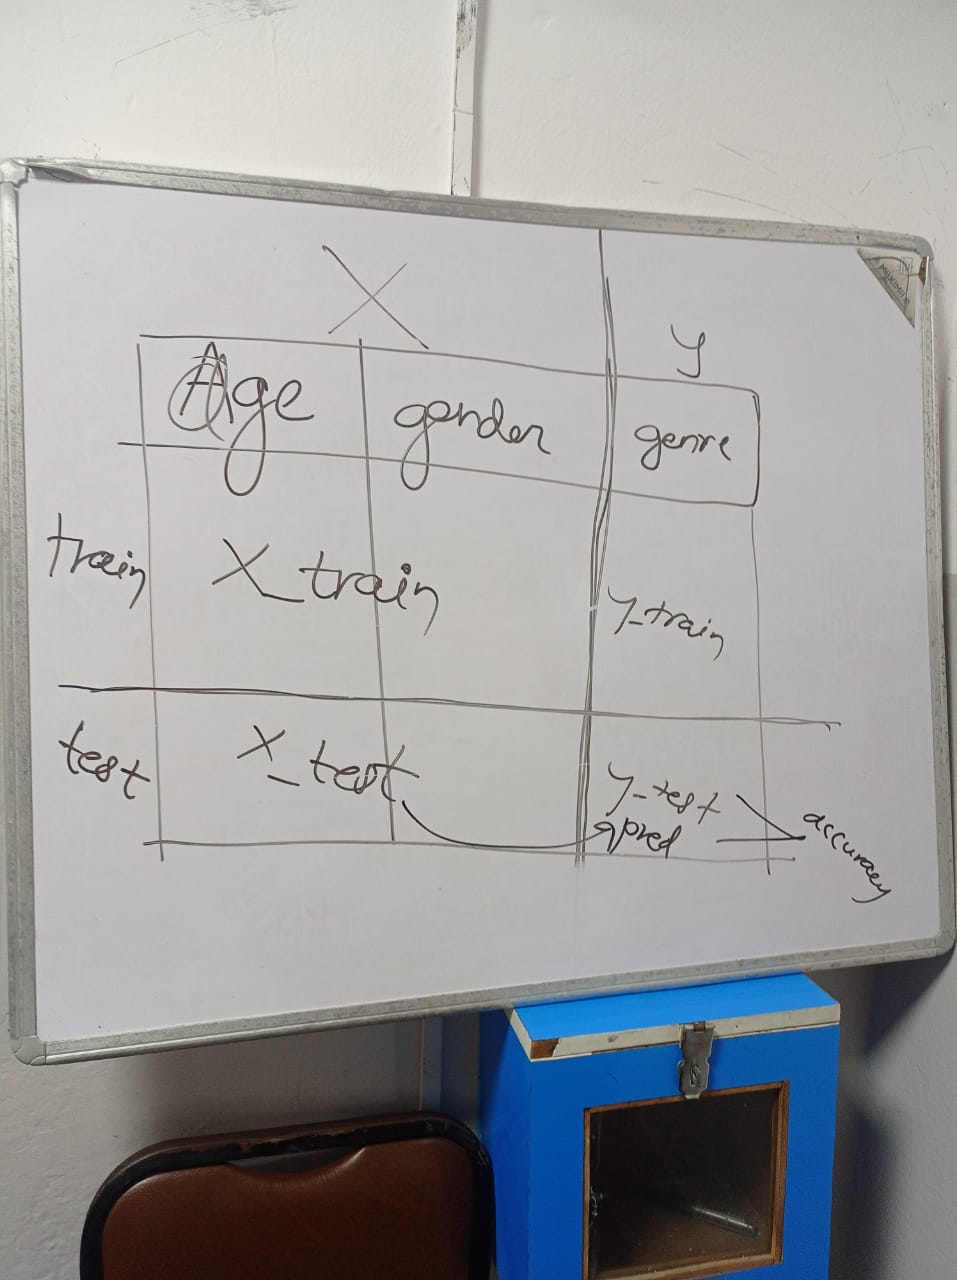 X
y
Age gender genre
train X_train y_train
test X_test y_test
ypred
accuracy